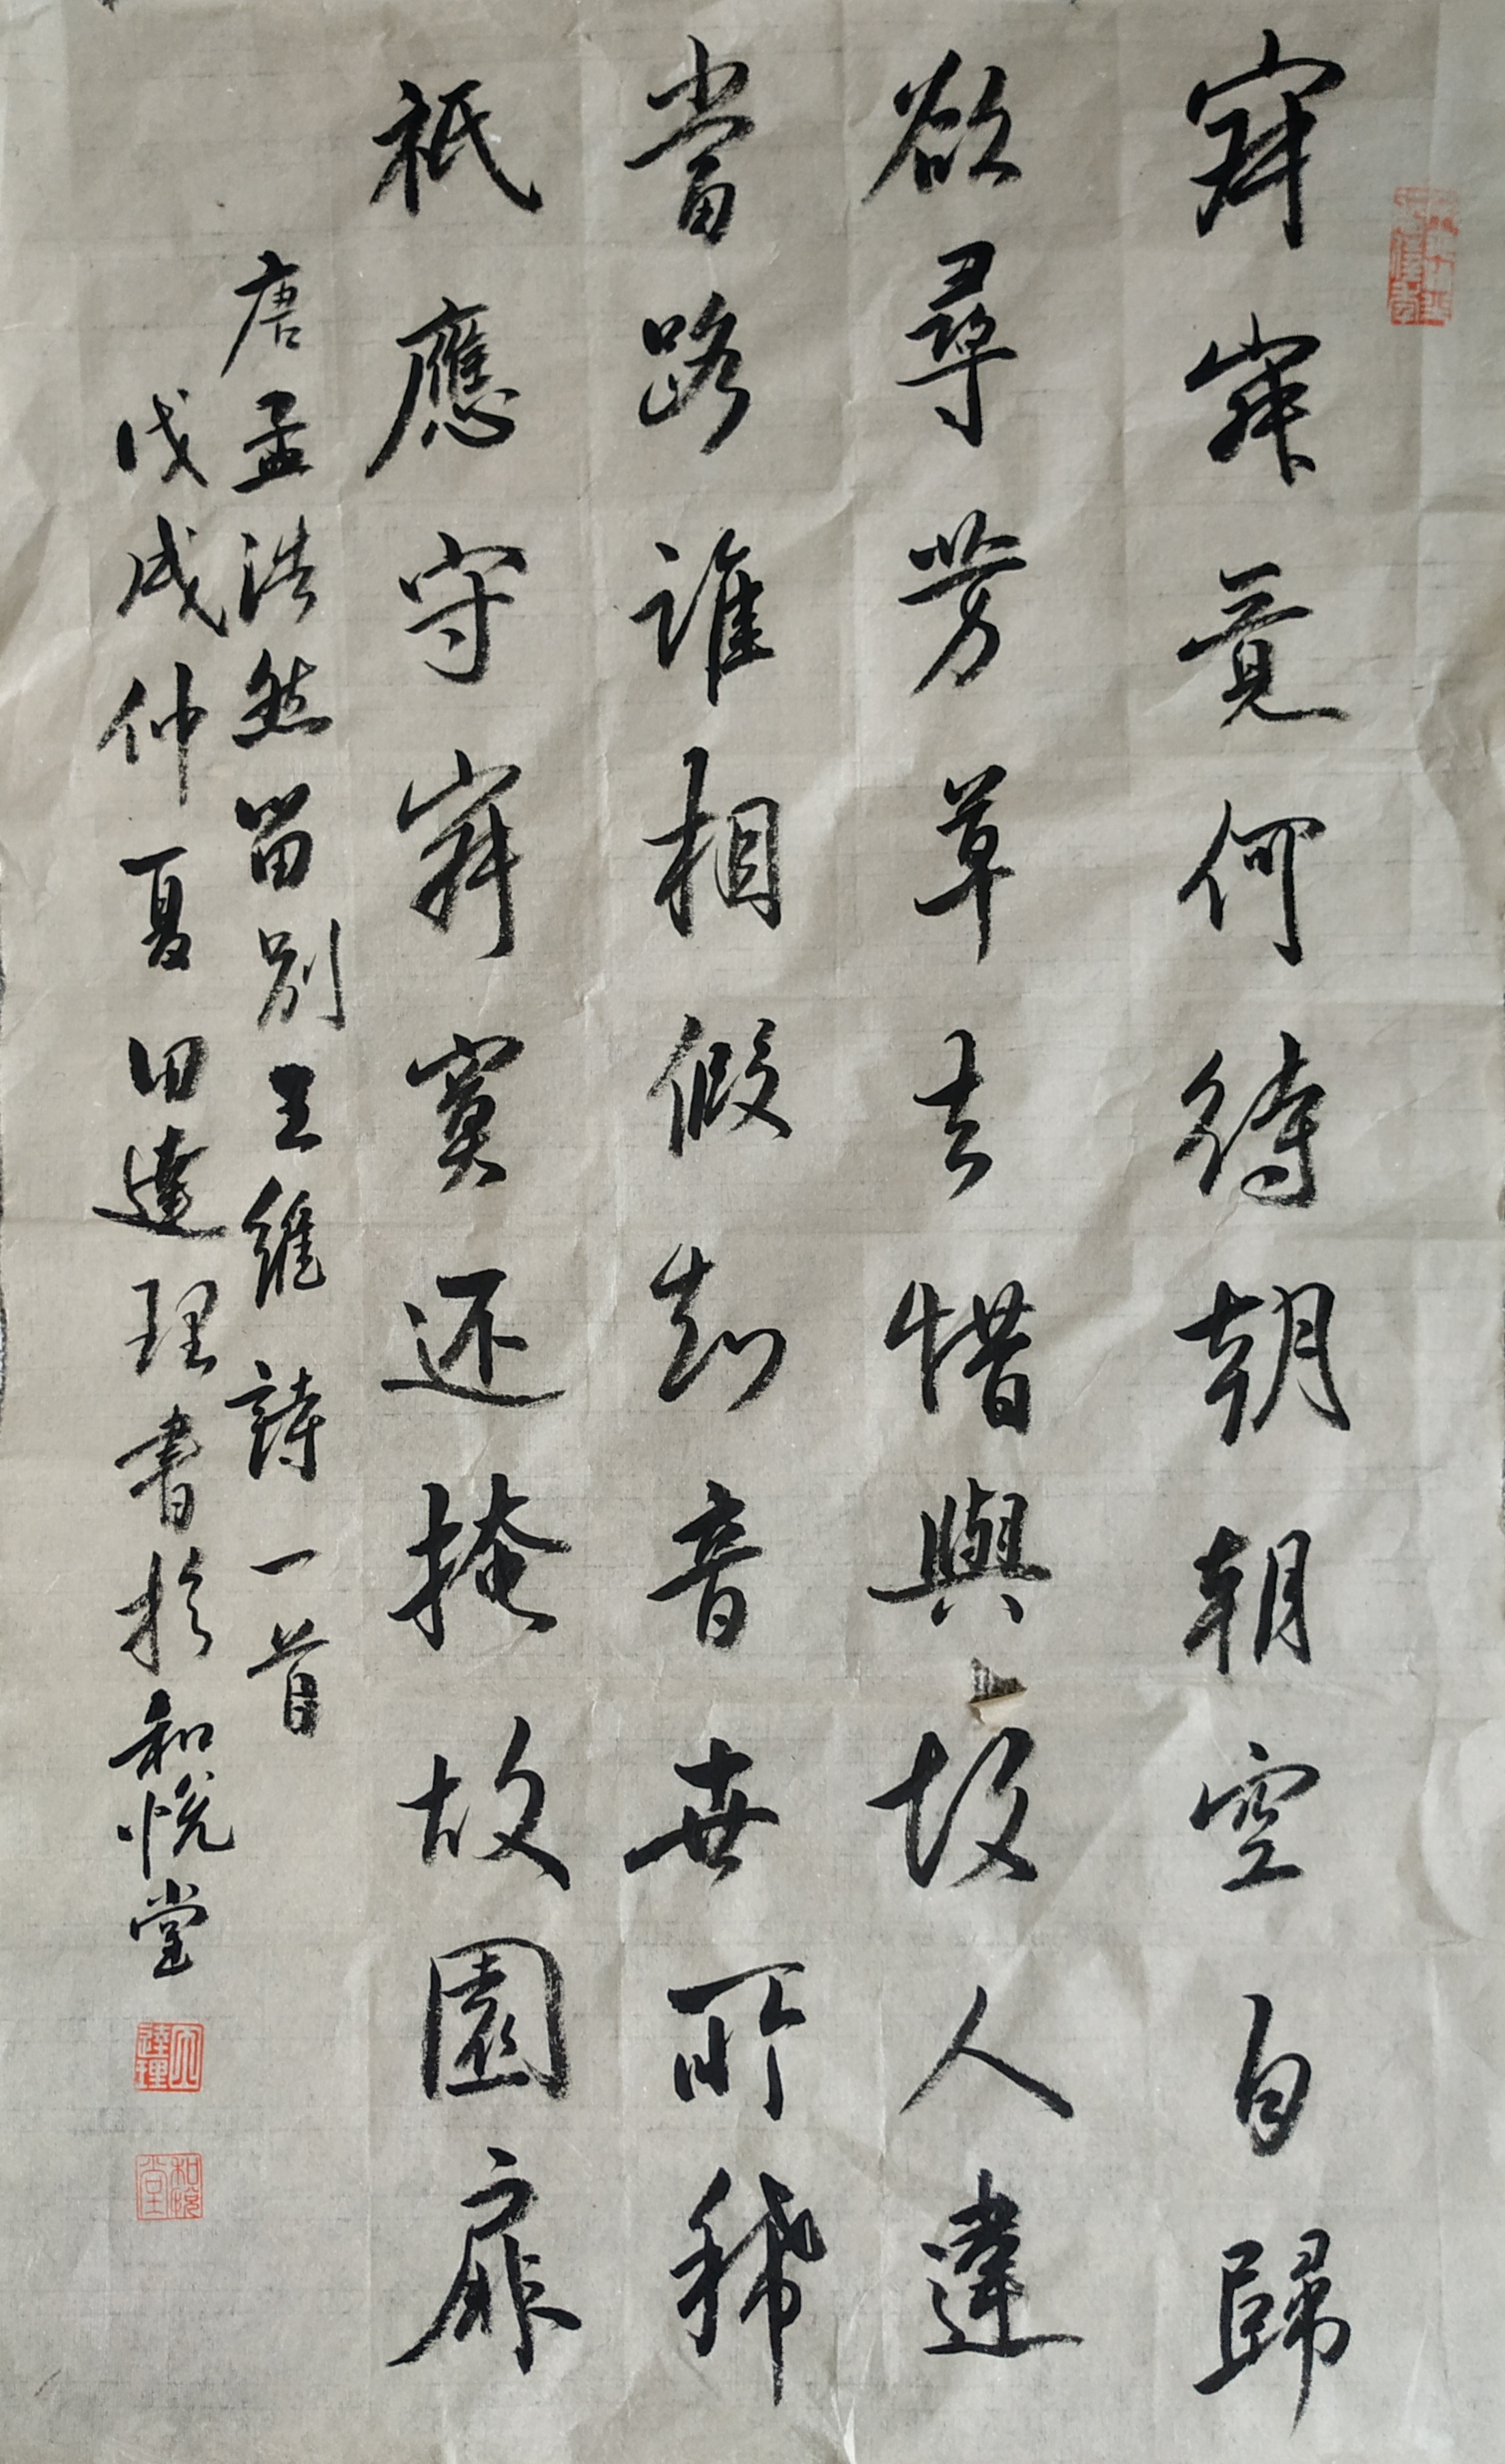 寂寂竟何待朝朝空自歸
欲尋芳草去惜與故人違
當路誰相假知音世所稀
祇應守寂寞还掩故園扉
唐孟浩然留别王維詩一首
戊戌仲夏田達理書於和悅堂
田達理
和悅堂